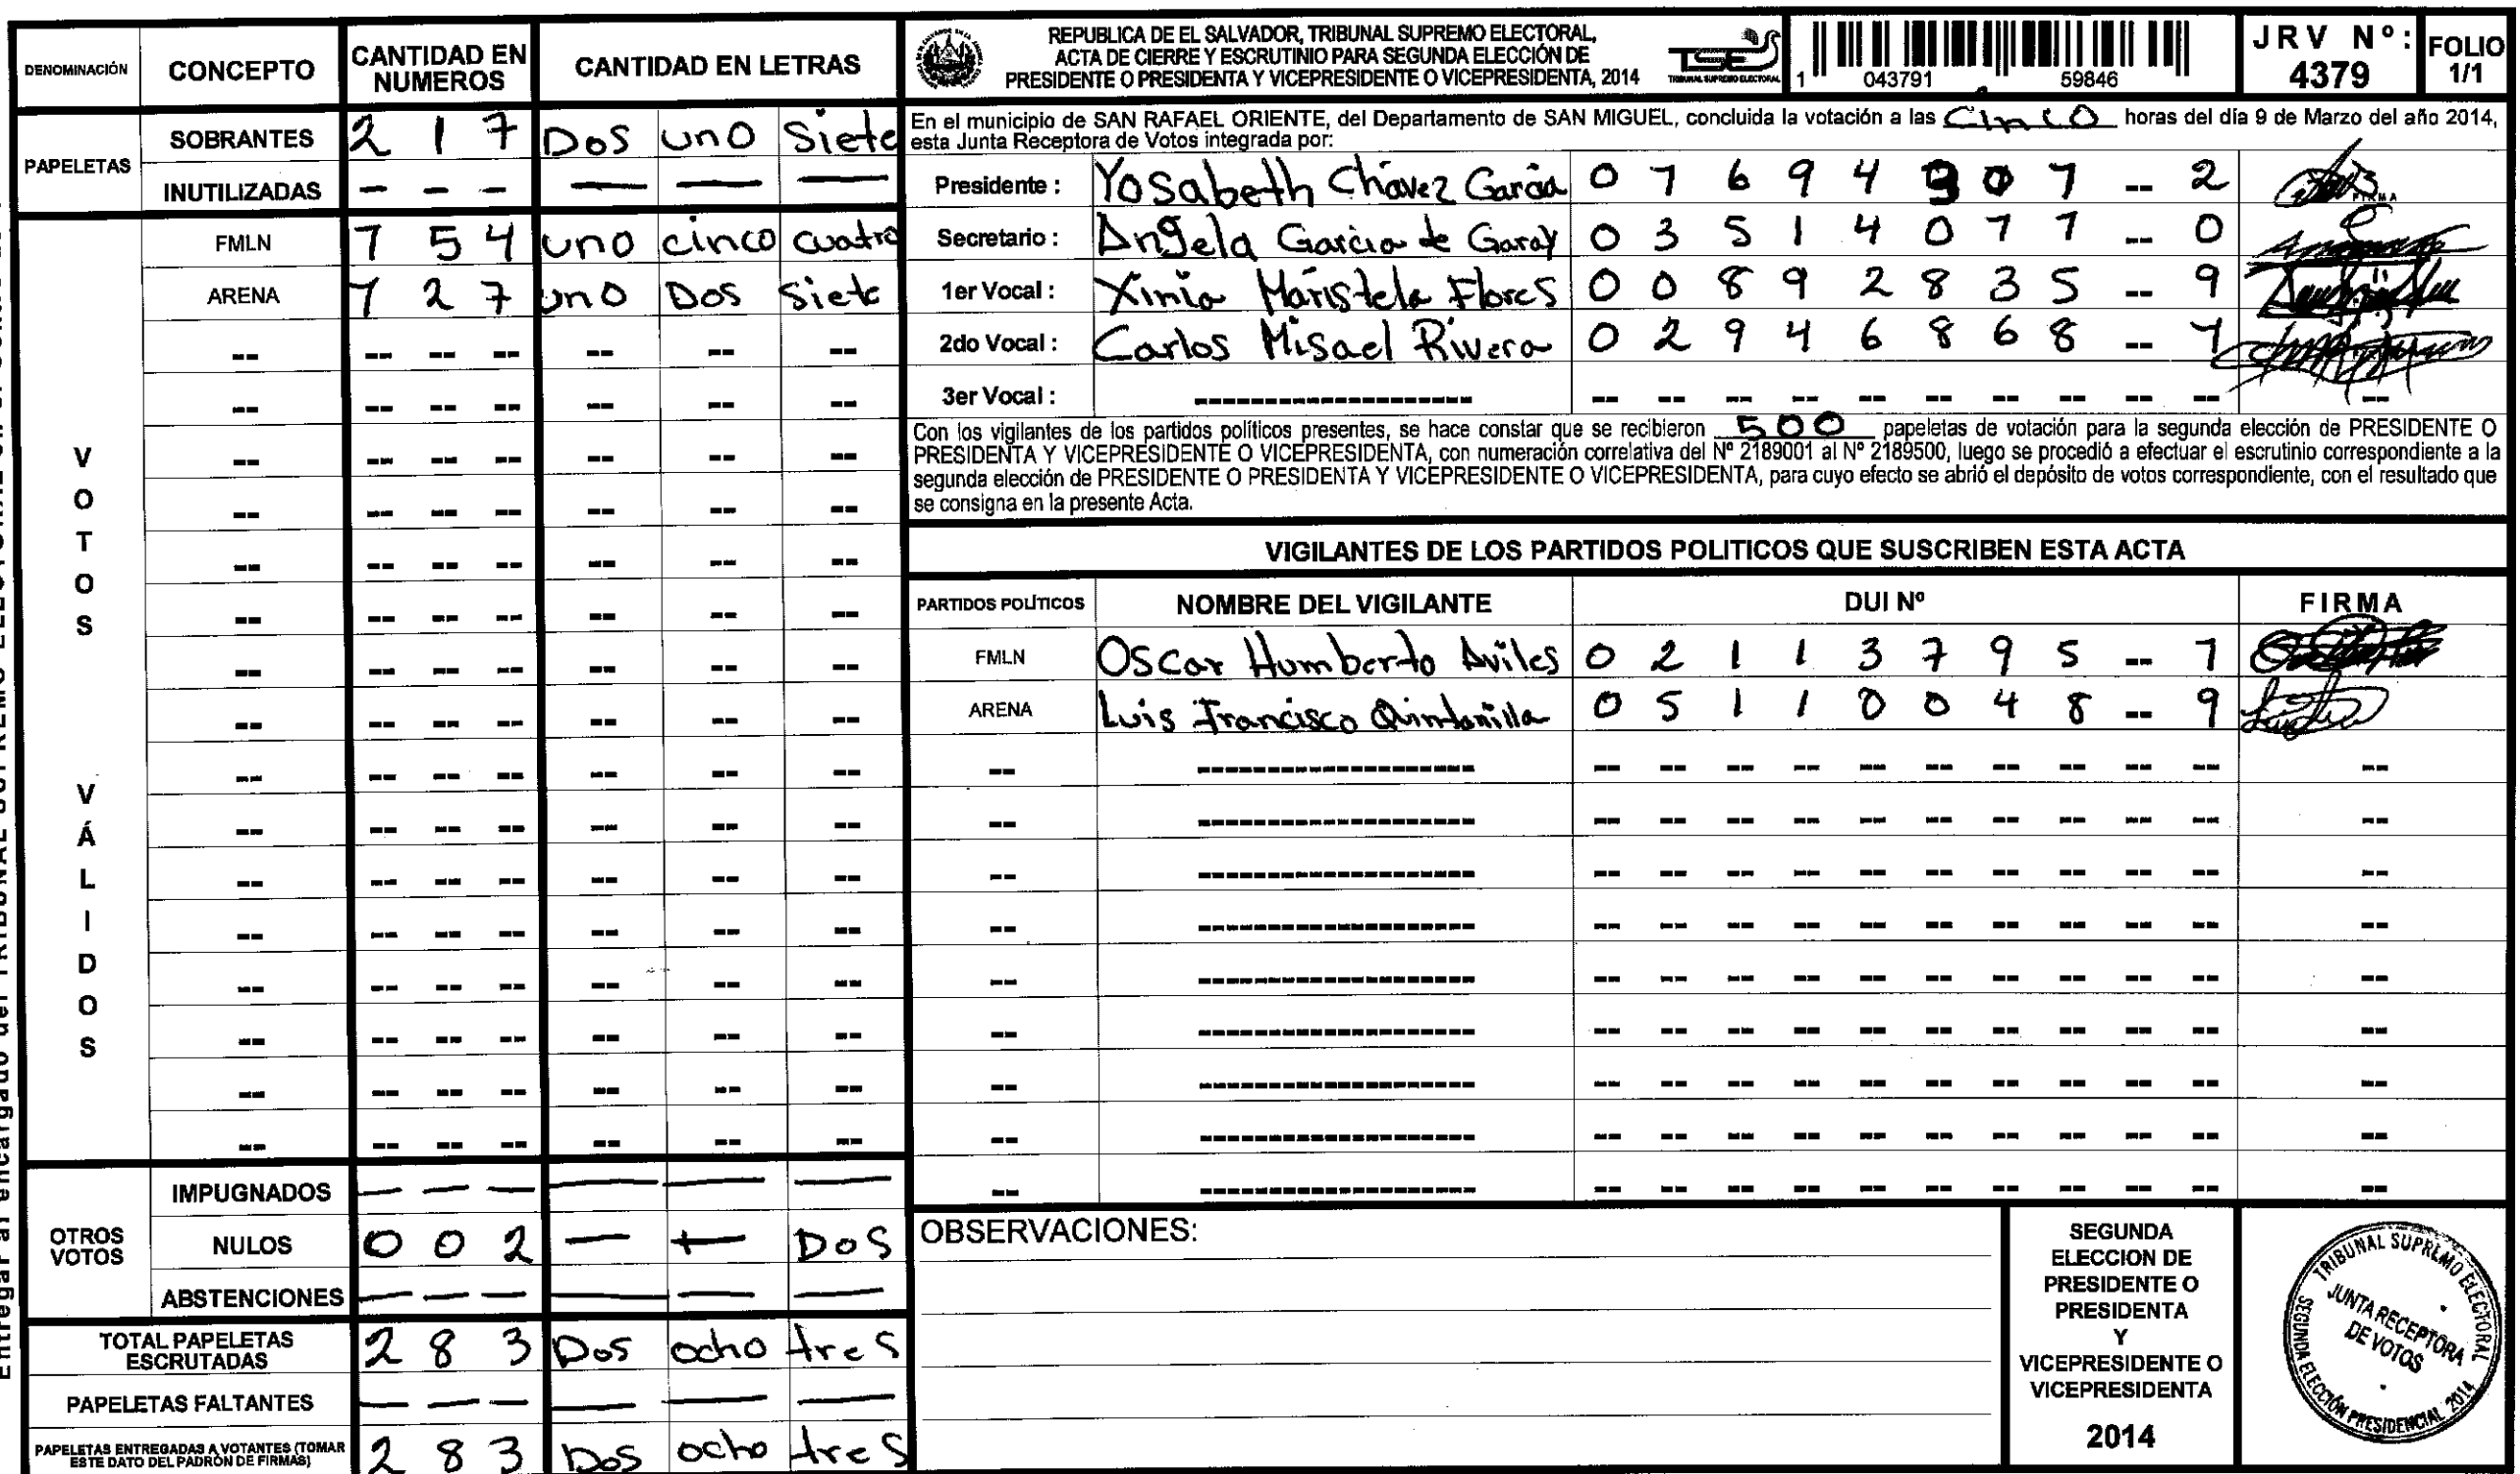 DENOMINACIÓN CONCEPTO CANTIDAD EN NUMEROS CANTIDAD EN LETRAS
PAPELETAS
SOBRANTES 2 1 7 Dos uno Siete
INUTILIZADAS - - - — — —
VOTOS VÁLIDOS
FMLN 1 5 4 uno cinco cuatro
ARENA 1 2 7 uno Dos Siete
OTROS VOTOS
IMPUGNADOS — — — — — —
NULOS 0 0 2 — — Dos
ABSTENCIONES — — — — — —
TOTAL PAPELETAS ESCRUTADAS 2 8 3 Dos ocho tres
PAPELETAS FALTANTES — — — — — —
PAPELETAS ENTREGADAS A VOTANTES (TOMAR ESTE DATO DEL PADRÓN DE FIRMAS) 2 8 3 Dos ocho tres
REPUBLICA DE EL SALVADOR, TRIBUNAL SUPREMO ELECTORAL,
ACTA DE CIERRE Y ESCRUTINIO PARA SEGUNDA ELECCIÓN DE
PRESIDENTE O PRESIDENTA Y VICEPRESIDENTE O VICEPRESIDENTA, 2014
TSE
TRIBUNAL SUPREMO ELECTORAL
1 043791 59846
JRV Nº: 4379
FOLIO 1/1
En el municipio de SAN RAFAEL ORIENTE, del Departamento de SAN MIGUEL, concluida la votación a las Cinco horas del día 9 de Marzo del año 2014,
esta Junta Receptora de Votos integrada por:
Presidente : Yosabeth Chávez García 0 1 6 9 4 9 0 7 -- 2
FIRMA
Secretario : Angela Garcia de Garay 0 3 5 1 4 0 7 7 -- 0
1er Vocal : Xinia Maristela Flores 0 0 8 9 2 8 3 5 -- 9
2do Vocal : Carlos Misael Rivera 0 2 9 4 6 8 6 8 -- 1
3er Vocal : ------------------
Con los vigilantes de los partidos políticos presentes, se hace constar que se recibieron 500 papeletas de votación para la segunda elección de PRESIDENTE O
PRESIDENTA Y VICEPRESIDENTE O VICEPRESIDENTA, con numeración correlativa del Nº 2189001 al Nº 2189500, luego se procedió a efectuar el escrutinio correspondiente a la
segunda elección de PRESIDENTE O PRESIDENTA Y VICEPRESIDENTE O VICEPRESIDENTA, para cuyo efecto se abrió el depósito de votos correspondiente, con el resultado que
se consigna en la presente Acta.
VIGILANTES DE LOS PARTIDOS POLITICOS QUE SUSCRIBEN ESTA ACTA
PARTIDOS POLÍTICOS NOMBRE DEL VIGILANTE DUI Nº FIRMA
FMLN Oscar Humberto Aviles 0 2 1 1 3 7 9 5 -- 1
ARENA Luis Francisco Quintanilla 0 5 1 1 0 0 4 8 -- 9
OBSERVACIONES:
SEGUNDA
ELECCION DE
PRESIDENTE O
PRESIDENTA
Y
VICEPRESIDENTE O
VICEPRESIDENTA
2014
TRIBUNAL SUPREMO ELECTORAL
JUNTA RECEPTORA
DE VOTOS
SEGUNDA ELECCIÓN PRESIDENCIAL 2014
Entregar al encargado del TRIBUNAL SUPREMO ELECTORAL